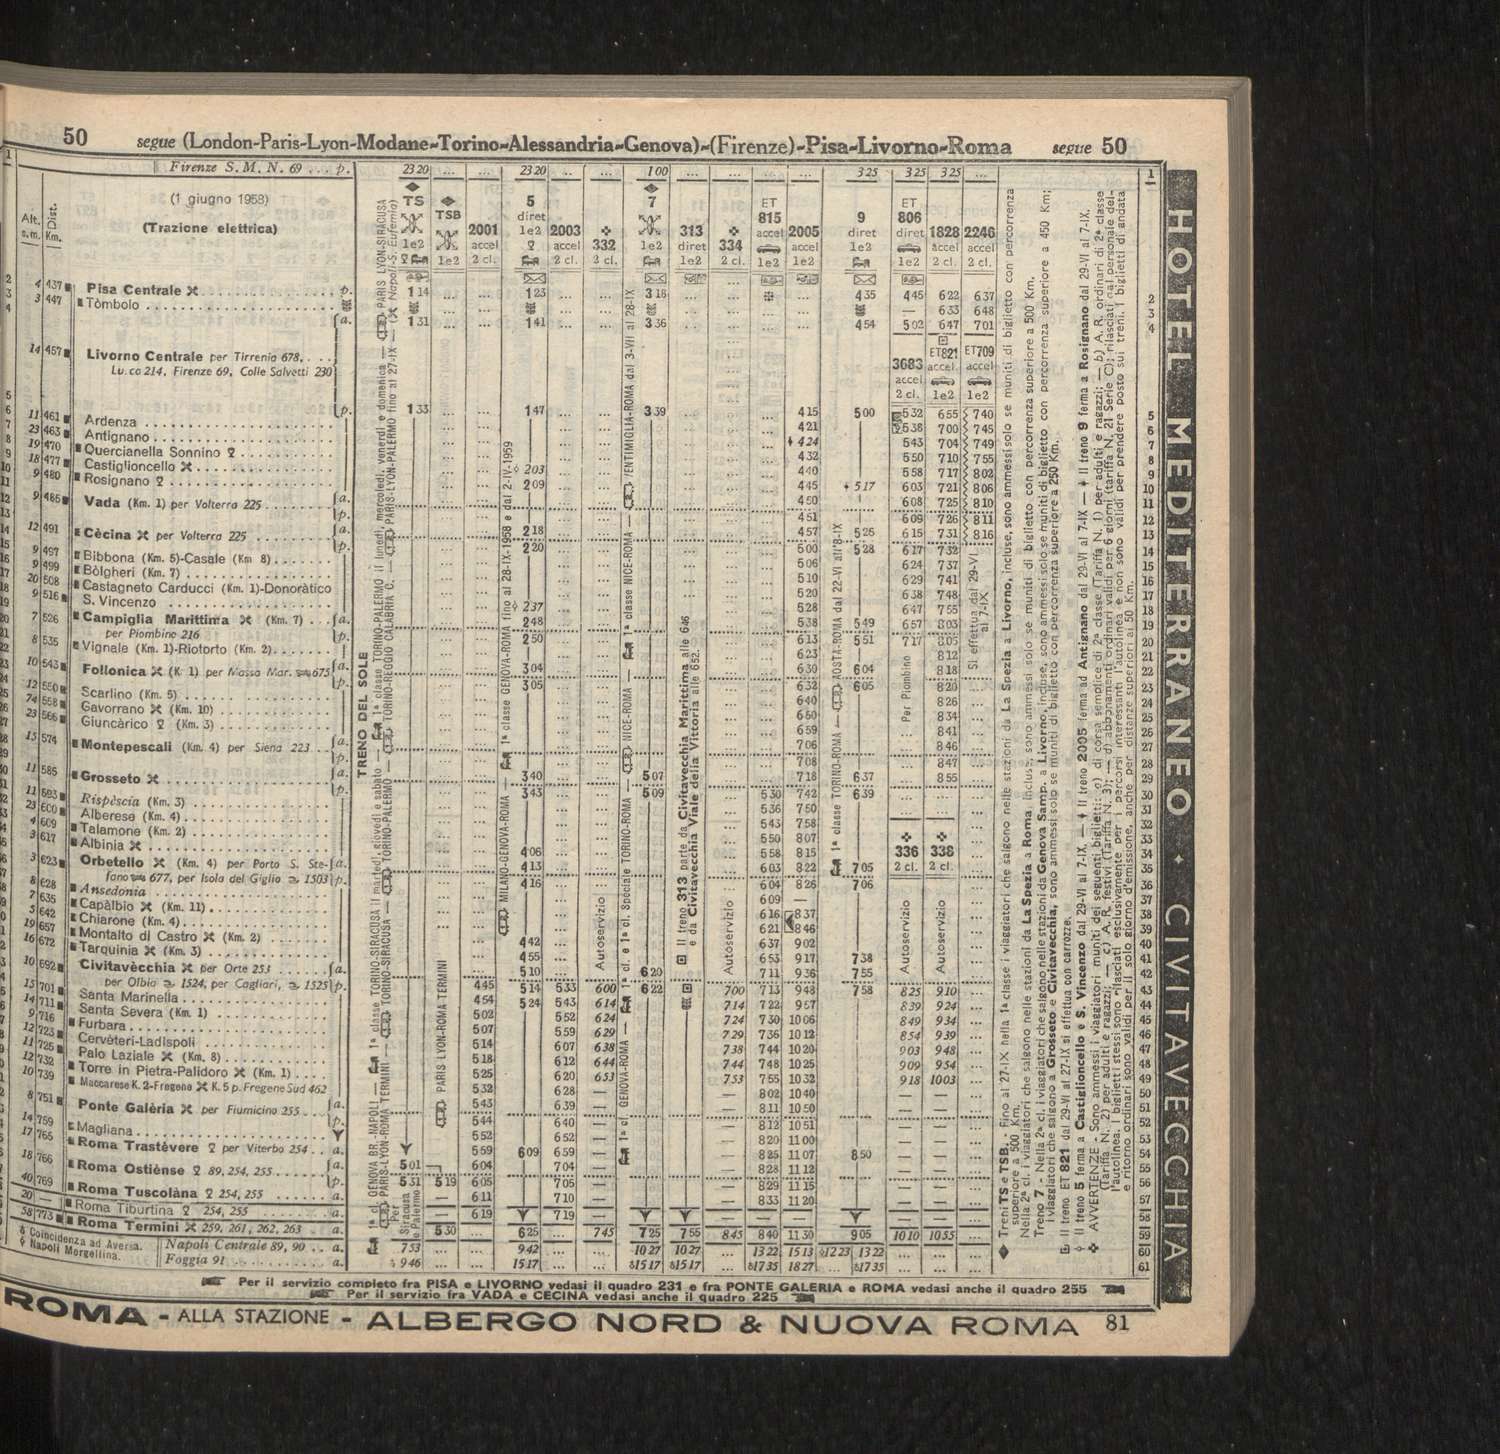 50 segue (London-Paris-Lyon-Modane-Torino-Alessandria-Genova)-(Firenze)-Pisa-Livorno-Roma segue 50
Firenze S. M. N. 69 . . . p. 23 20 ... ... 23 20 ... ... 1 00 ... ... ... ... 3 25 3 25 3 25 ...
(1 giugno 1958)
(Trazione elettrica)
Alt. s.m. Dist. Km.
TS 1e2
TSB 1e2
2001 accel 2 cl.
5 diret 1e2
2003 accel 2 cl.
332 2 cl.
7 1e2
313 diret 1e2
334 2 cl.
ET 815 accel 1e2
2005 accel 1e2
9 diret 1e2
ET 806 diret 1e2
1828 accel 2 cl.
2246 accel 2 cl.
4 437 Pisa Centrale p. 1 14 ... ... 1 23 ... ... 3 18 ... ... ... 4 35 4 45 6 22 6 37
3 447 Tòmbolo — 6 33 6 48
a. 1 31 ... ... 1 41 ... ... 3 36 ... ... ... ... 4 54 5 02 6 47 7 01
14 457 Livorno Centrale per Tirrenia 678,
Lucca 214, Firenze 69, Colle Salvetti 230
3683 accel 2 cl.
ET821 accel. 1e2
ET709 accel. 1e2
p. 1 33 ... ... 1 47 ... ... 3 39 ... ... ... 4 15 5 00 5 32 6 55 7 40
11 461 Ardenza 4 21 5 38 7 00 7 45
23 463 Antignano 4 24 5 43 7 04 7 49
19 470 Quercianella Sonnino 4 32 5 50 7 10 7 55
18 477 Castiglioncello 2 03 4 40 5 58 7 17 8 02
9 480 Rosignano 2 09 4 45 5 17 6 03 7 21 8 06
9 485 Vada (Km. 1) per Volterra 225 a. 4 50 6 08 7 25 8 10
p. 4 51 6 09 7 26 8 11
12 491 Cècina per Volterra 225 a. 2 18 4 57 5 25 6 15 7 31 8 16
p. 2 20 5 00 5 28 6 17 7 32
9 497 Bibbona (Km. 5)-Casale (Km 8) 5 06 6 24 7 37
9 499 Bòlgheri (Km. 7) 5 10 6 29 7 41
20 508 Castagneto Carducci (Km. 1)-Donoràtico 5 20 6 38 7 48
9 516 S. Vincenzo 2 37 5 28 6 47 7 55
7 526 Campiglia Marittima (Km. 7) a. 2 48 5 38 5 49 6 57 8 03
per Piombino 216 p. 2 50 6 13 5 51 7 17 8 05
8 535 Vignale (Km. 1)-Riotorto (Km. 2) 6 23 8 12
10 543 Follonica (K. 1) per Massa Mar. 675 a. 3 04 6 30 6 04 8 18
p. 3 05 6 32 6 05 8 20
12 550 Scarlino (Km. 5) 6 40 8 26
74 558 Gavorrano (Km. 10) 6 50 8 34
23 566 Giuncàrico (Km. 3) 6 59 8 41
15 574 Montepescali (Km. 4) per Siena 223 a. 7 06 8 46
p. 7 08 8 47
11 585 Grosseto a. 3 40 5 07 7 18 6 37 8 55
p. 3 43 5 09 5 30 7 42 6 39
11 593 Rispèscia (Km. 3) 5 36 7 50
23 600 Alberese (Km. 4) 5 43 7 58
4 609 Talamone (Km. 2) 5 50 8 07
3 617 Albinia 4 06 5 58 8 15
3 623 Orbetello (Km. 4) per Porto S. Ste- a. 4 13 6 03 8 22 7 05
fano 677, per Isola del Giglio 1503 p. 4 16 6 04 8 26 7 06
336 2 cl.
338 2 cl.
8 628 Ansedonia 6 09 —
7 635 Capàlbio (Km. 11) 6 16 8 37
5 642 Chiarone (Km. 4) 6 21 8 46
19 657 Montalto di Castro (Km. 2) 4 42 6 37 9 02
16 672 Tarquinia (Km. 3) 4 55 6 53 9 17 7 38
10 692 Civitavècchia per Orte 253 a. 5 10 6 20 7 11 9 36 7 55
per Olbia 1524, per Cagliari, 1525 p. 4 45 5 14 5 33 6 00 6 22 7 00 7 13 9 48 7 58 8 25 9 10
15 701 Santa Marinella 4 54 5 24 5 43 6 14 7 14 7 22 9 57 8 39 9 24
14 711 Santa Severa (Km. 1) 5 02 5 52 6 24 7 24 7 30 10 06 8 49 9 34
9 716 Furbara 5 07 5 59 6 29 7 29 7 36 10 12 8 54 9 39
12 723 Cervèteri-Ladìspoli 5 14 6 07 6 38 7 38 7 44 10 20 9 03 9 48
11 725 Palo Laziale (Km. 8) 5 18 6 12 6 44 7 44 7 48 10 25 9 09 9 54
12 732 Torre in Pietra-Palidoro (Km. 1) 5 25 6 20 6 53 7 53 7 55 10 32 9 18 10 03
10 739 Maccarese K. 2-Fregene K. 5 p. Fregene Sud 462 5 32 6 28 — — 8 02 10 40 — —
8 751 Ponte Galèria per Fiumicino 255 a. 5 43 6 39 — — 8 11 10 50 — —
p. 5 44 6 40 — — 8 12 10 51 — —
14 759 Magliana 5 52 6 52 — — 8 20 11 00 — —
17 765 Roma Trastèvere per Viterbo 254 a. 5 59 6 09 6 59 — — 8 25 11 07 8 50 — —
18 766 Roma Ostiènse 89, 254, 255 a. 5 01 6 04 7 04 — — 8 28 11 12 — —
p. 5 31 5 19 6 05 7 05 — — 8 29 11 15 — —
40 769 Roma Tuscolàna 254, 255 a. 6 11 7 10 — — 8 33 11 20 — —
20 — Roma Tiburtina 254, 255 a. — 6 19 7 19 — — — — — —
58 773 Roma Termini 259, 261, 262, 263 a. 5 30 6 25 7 45 7 25 7 55 8 45 8 40 11 30 9 05 10 10 10 55
Napoli Centrale 89, 90 a. 7 53 9 42 10 27 10 27 13 22 15 13 12 23 13 22
Foggia 91 a. 9 46 15 17 15 17 15 17 17 35 18 27 17 35
Coincidenza ad Aversa.
Napoli Mergellina.
TRENO DEL SOLE
Per Siracusa e Palermo
PARIS LYON-ROMA TERMINI
MILANO-GENOVA-ROMA — 1ª classe GENOVA-ROMA fino al 28-IX-1958 e dal 2-IV-1959
Autoservizio
Il treno 313 parte da Civitavecchia Marittima alle 646
e da Civitavecchia Viale della Vittoria alle 652.
Autoservizio
1ª classe TORINO-ROMA — AOSTA-ROMA dal 22-VI all'8-IX
Per Piombino
Autoservizio
Autoservizio
Si effettua dal 29-VI
al 7-IX.
Treni TS e TSB. - Fino al 27-IX nella 1ª classe i viaggiatori che salgono nelle stazioni da La Spezia a Livorno, incluse, sono ammessi solo se muniti di biglietto con percorrenza
superiore a 500 Km.
Nella 2ª cl. i viaggiatori che salgono nelle stazioni da La Spezia a Roma, incluse, sono ammessi solo se muniti di biglietto con percorrenza superiore a 500 Km.
Treno 7 - Nella 2ª cl. i viaggiatori che salgono nelle stazioni da Genova Samp. a Livorno, incluse, sono ammessi solo se muniti di biglietto con percorrenza superiore a 450 Km;
i viaggiatori che salgono a Grosseto e Civitavecchia, sono ammessi solo se muniti di biglietto con percorrenza superiore a 250 Km.
Il treno ET 821 dal 29-VI al 27-IX si effettua con carrozze.
Il treno 5 ferma a Castiglioncello e S. Vincenzo dal 29-VI al 7-IX. — Il treno 2005 ferma ad Antignano dal 29-VI al 7-IX — Il treno 9 ferma a Rosignano dal 29-VI al 7-IX.
AVVERTENZE - Sono ammessi i viaggiatori muniti dei seguenti biglietti: a) di corsa semplice di 2ª classe (Tariffa N. 1) per adulti e ragazzi; — b) A. R. ordinari di 2ª classe
(Tariffa N. 2) per adulti e ragazzi; — c) A. R. festivi (Tariffa N. 3); — d) abbonamenti ordinari validi per 6 giorni (tariffa N. 21 Serie C); rilasciati dal personale del-
l'autolinea. I biglietti stessi sono rilasciati esclusivamente per i percorsi interessanti l'autolinea e non sono validi per prendere posto sui treni. I biglietti di andata
e ritorno ordinari sono validi per il solo giorno d'emissione, anche per distanze superiori ai 50 Km.
Per il servizio completo fra PISA e LIVORNO vedasi il quadro 231 e fra PONTE GALERIA e ROMA vedasi anche il quadro 255
Per il servizio fra VADA e CECINA vedasi anche il quadro 225
ROMA - ALLA STAZIONE - ALBERGO NORD & NUOVA ROMA 81
HOTEL MEDITERRANEO • CIVITAVECCHIA